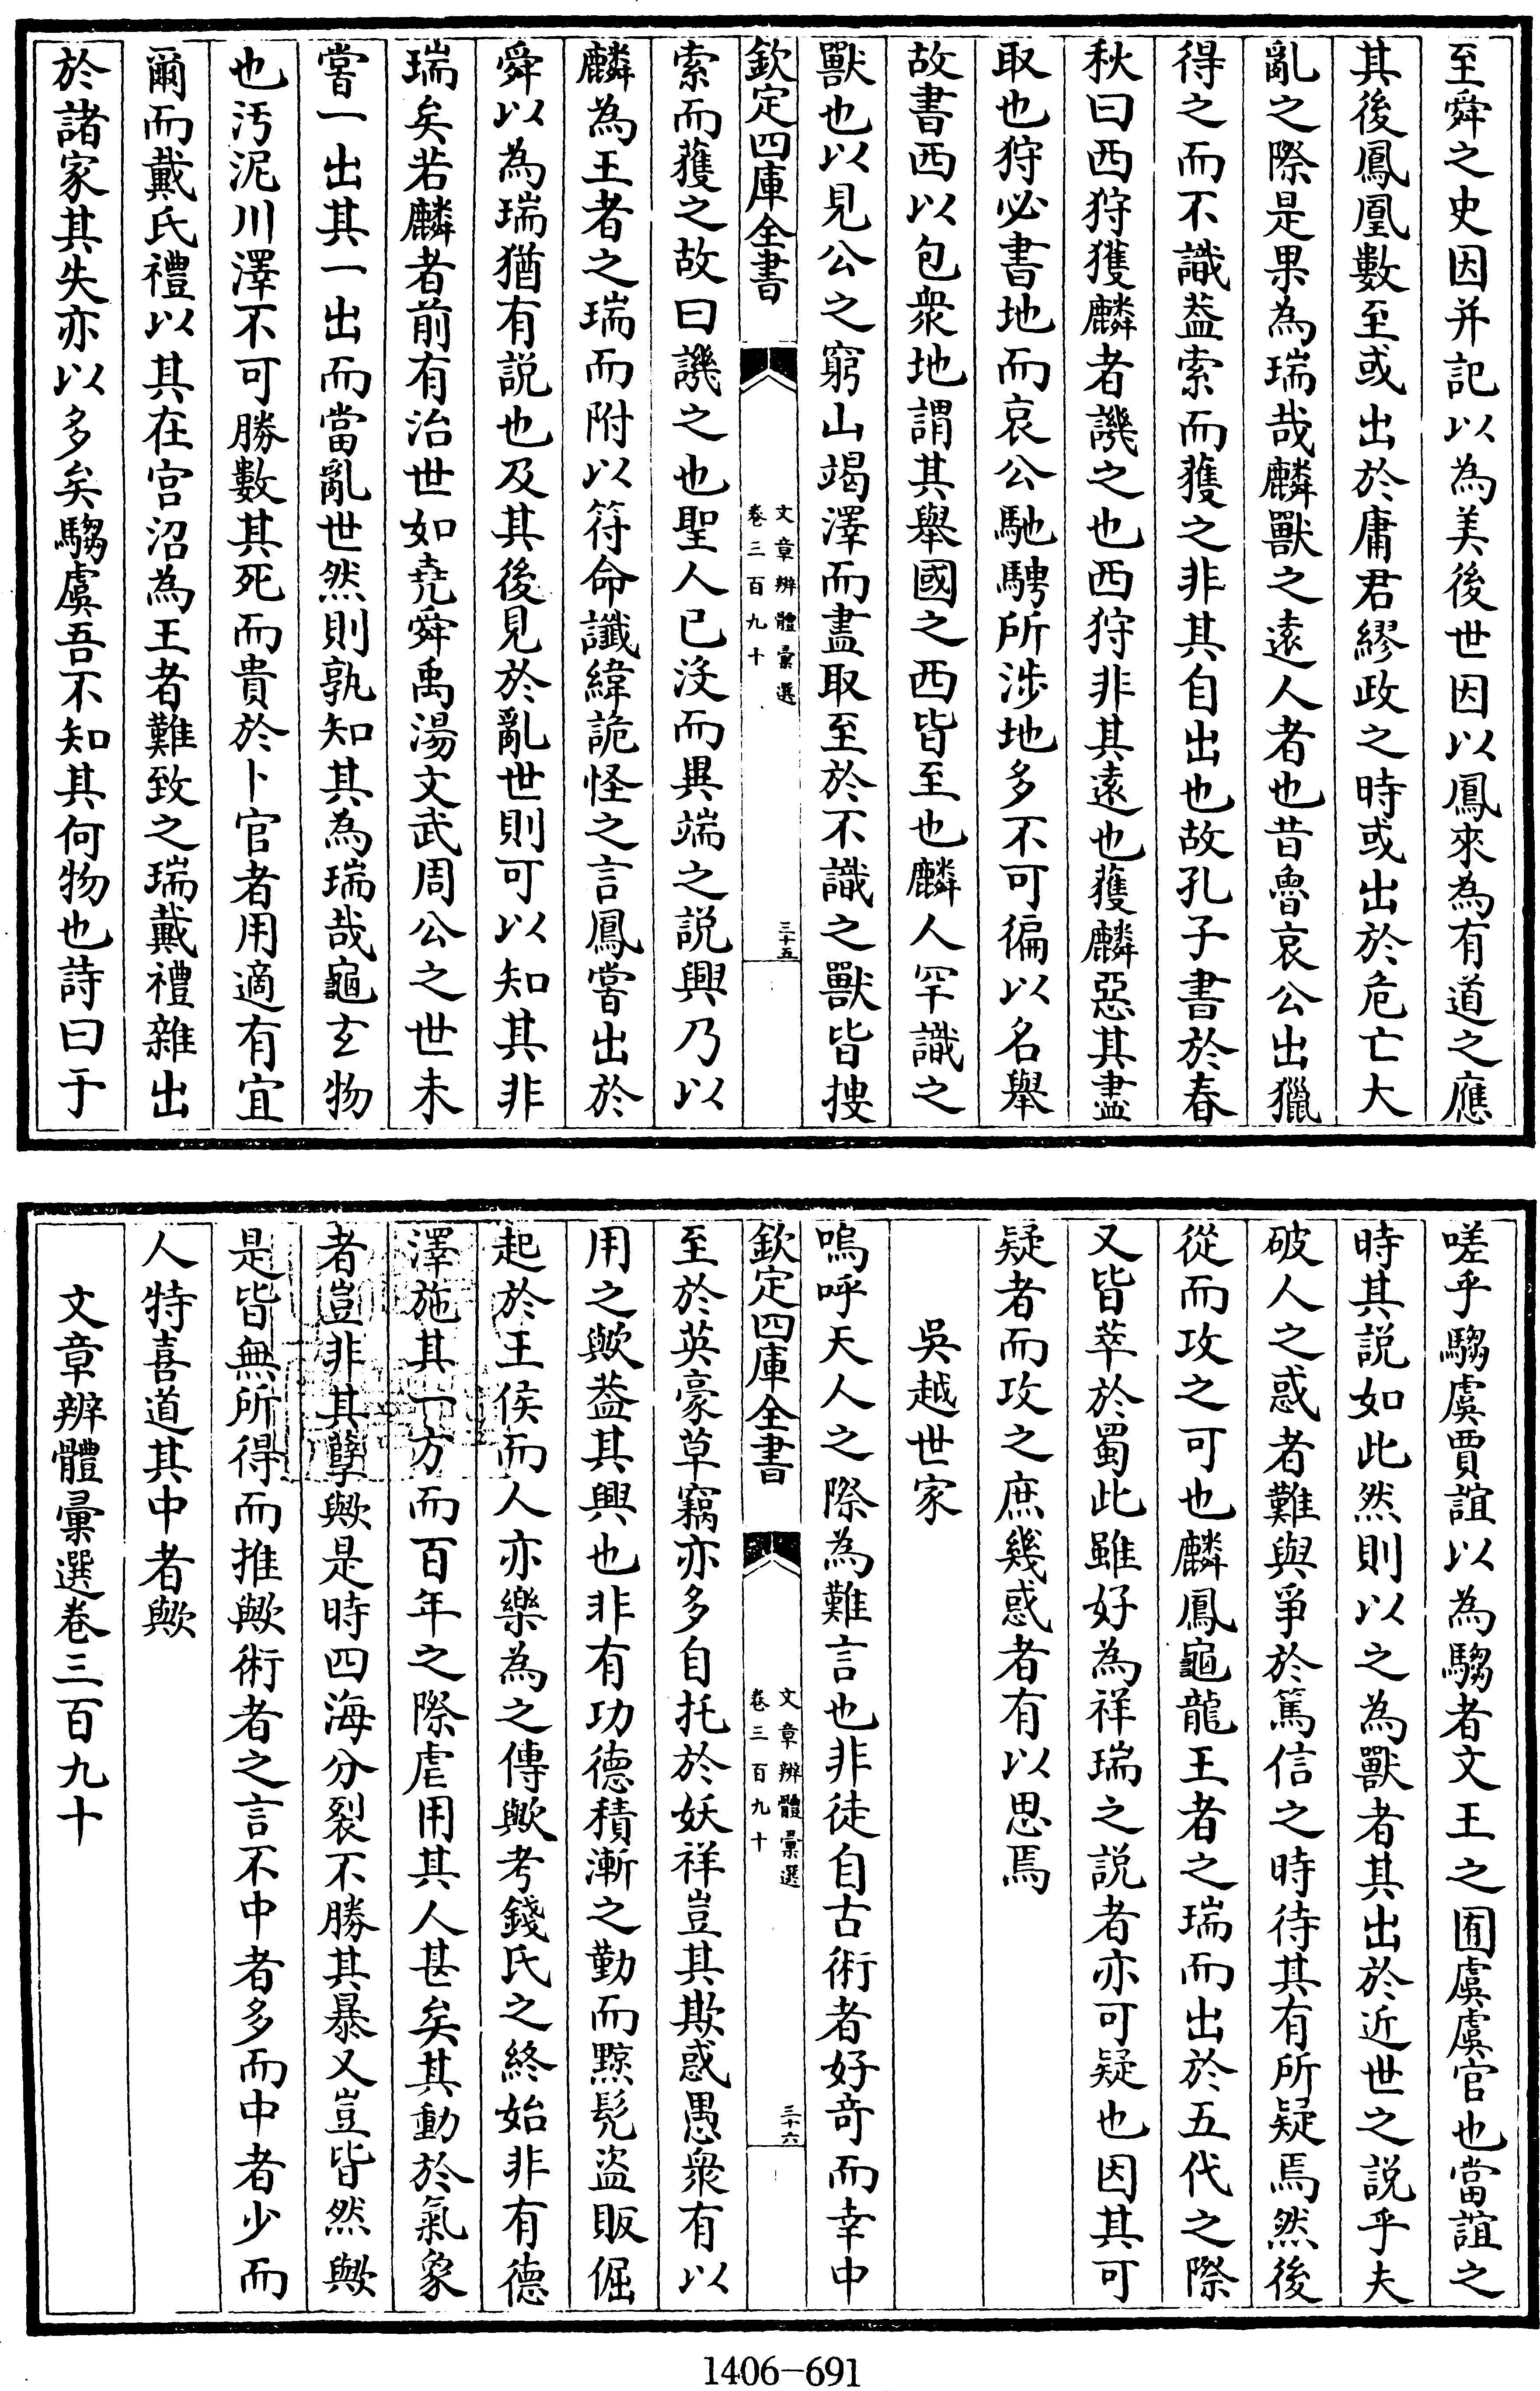 至舜之史因并記以為美後世因以鳳來為有道之應
其後鳳凰數至或出於庸君繆政之時或出於危亡大
亂之際是果為瑞哉麟獸之遠人者也昔魯哀公出獵
得之而不識葢索而獲之非其自出也故孔子書於春
秋曰西狩獲麟者譏之也西狩非其遠也獲麟惡其盡
取也狩必書地而哀公馳騁所涉地多不可徧以名舉
故書西以包衆地謂其舉國之西皆至也麟人罕識之
獸也以見公之窮山竭澤而盡取至於不識之獸皆搜
欽定四庫全書
文章辨體彙選
卷三百九十
三十五
索而獲之故曰譏之也聖人已沒而異端之説興乃以
麟為王者之瑞而附以符命讖緯詭怪之言鳳嘗出於
舜以為瑞猶有説也及其後見於亂世則可以知其非
瑞矣若麟者前有治世如堯舜禹湯文武周公之世未
嘗一出其一出而當亂世然則孰知其為瑞哉龜玄物
也汚泥川澤不可勝數其死而貴於卜官者用適有宜
爾而戴氏禮以其在宮沼為王者難致之瑞戴禮雜出
於諸家其失亦以多矣騶虞吾不知其何物也詩曰于
嗟乎騶虞賈誼以為騶者文王之囿虞虞官也當誼之
時其説如此然則以之為獸者其出於近世之説乎夫
破人之惑者難與爭於篤信之時待其有所疑焉然後
從而攻之可也麟鳳龜龍王者之瑞而出於五代之際
又皆萃於蜀此雖好為祥瑞之説者亦可疑也因其可
疑者而攻之庶幾惑者有以思焉
吳越世家
嗚呼天人之際為難言也非徒自古術者好奇而幸中
欽定四庫全書
文章辨體彙選
卷三百九十
三十六
至於英豪草竊亦多自托於妖祥豈其欺惑愚衆有以
用之歟葢其興也非有功德積漸之勤而黥髡盜販倔
起於王侯而人亦樂為之傳歟考錢氏之終始非有德
澤施其一方而百年之際虐用其人甚矣其動於氣象
者豈非其孽歟是時四海分裂不勝其暴又豈皆然歟
是皆無所得而推歟術者之言不中者多而中者少而
人特喜道其中者歟
文章辨體彙選卷三百九十
1406-691